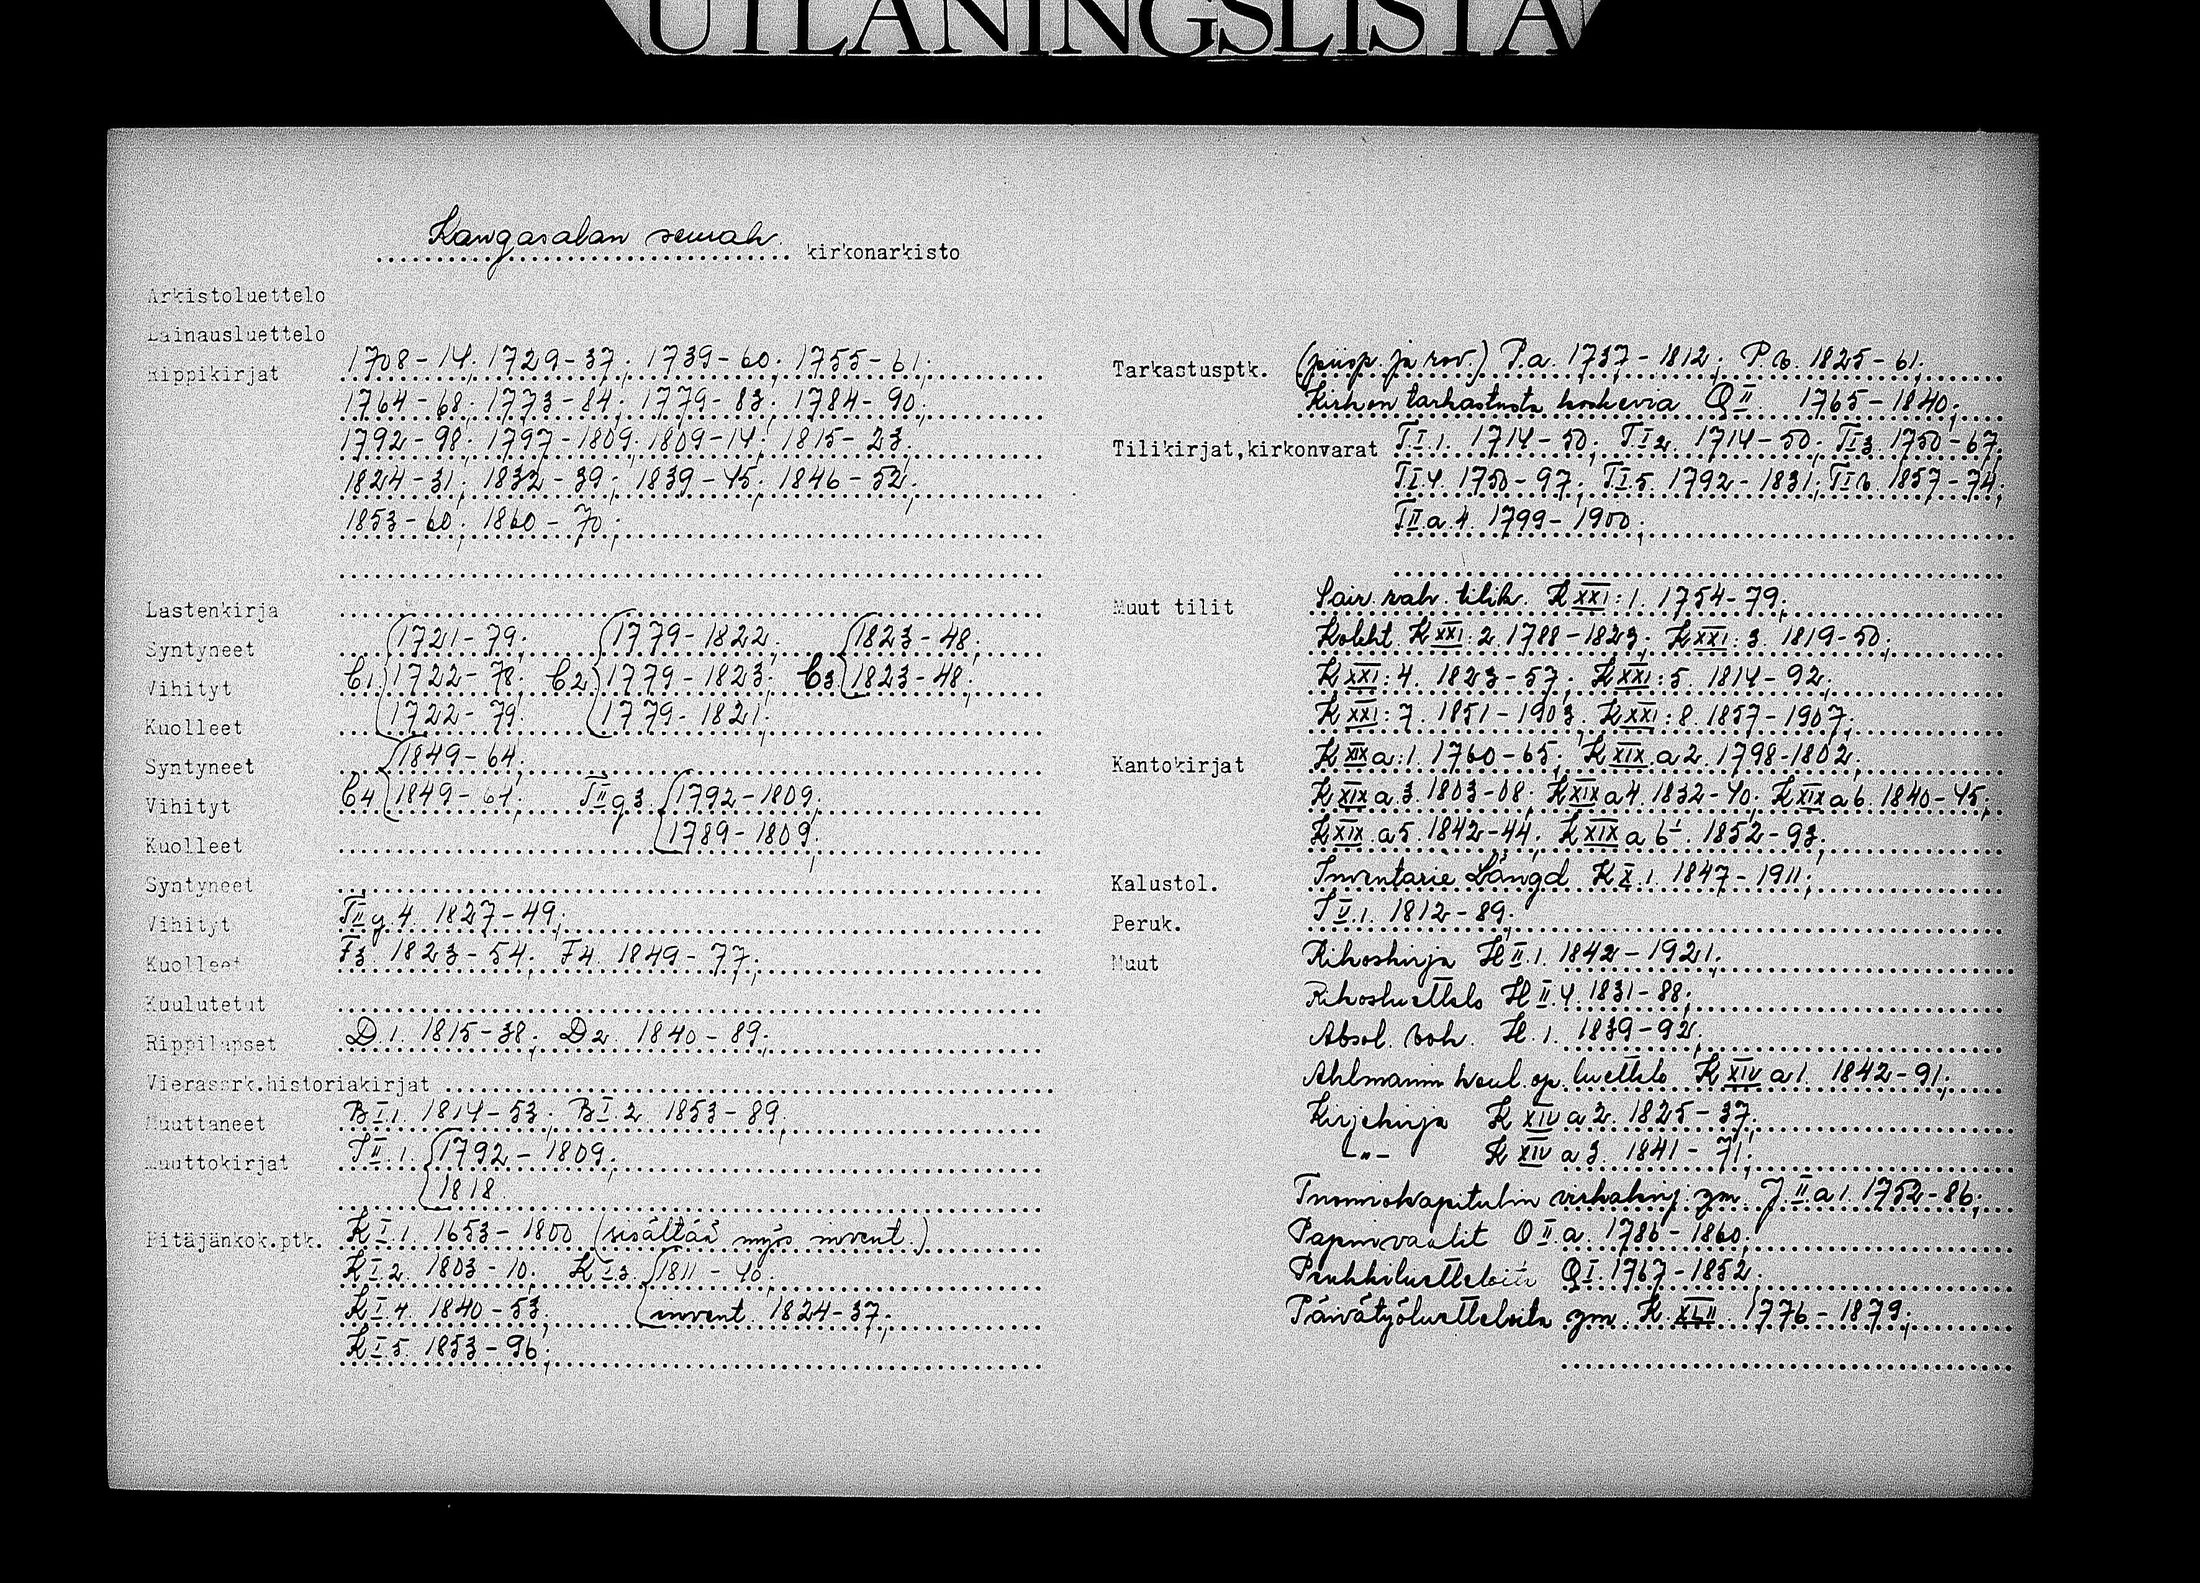 UTLÅNINGSLISTA
Kangasalan seurak. kirkonarkisto
Arkistoluettelo
Lainausluettelo
Rippikirjat 1708-14; 1729-37; 1739-60; 1755-61;
1764-68; 1773-84; 1779-83; 1784-90;
1792-98; 1797-1809; 1809-14; 1815-23;
1824-31; 1832-39; 1839-45; 1846-52;
1853-60; 1860-70;
Lastenkirja
Syntyneet 1721-79; 1779-1822; 1823-48;
Vihityt C1. 1722-78; C2 1779-1823; C3 1823-48;
Kuolleet 1722-79; 1779-1821;
Syntyneet 1849-64;
Vihityt C4 1849-61; TII g 3. 1792-1809;
Kuolleet 1789-1809;
Syntyneet
Vihityt TII g. 4. 1827-49;
Kuolleet F3. 1823-54; F4. 1849-77;
Kuulutetut
Rippilapset D1. 1815-38; D2. 1840-89;
Vierassrk.historiakirjat
Muuttaneet BI.1. 1814-53; BI.2. 1853-89;
Muuttokirjat TII.1. 1792-1809;
1818
Pitäjänkok.ptk. KI.1. 1653-1800 (sisältää myös invent.)
KI.2. 1803-10; KI.3. 1811-40;
KI.4. 1840-53; invent. 1824-37;
KI.5. 1853-96;
Tarkastusptk. (piisp. ja rov.) P.a. 1737-1812; P.b. 1825-61;
Kirkon tarkastusta koskevia QII 1765-1840;
Tilikirjat,kirkonvarat TI.1. 1714-50; TI2. 1714-50; TI3. 1750-67;
TI.4. 1750-97; TI.5. 1792-1831; TI6. 1857-74;
TII.a.4. 1799-1900;
Muut tilit Sair. rah. tilik. KXXI:1. 1754-79;
Kolekt KXXI:2. 1788-1823; KXXI:3. 1819-50;
KXXI:4. 1823-57; KXXI:5. 1814-92;
KXXI:7. 1851-1903. KXXI:8. 1857-1907;
Kantokirjat KXIXa:1. 1760-65; KXIX.a2. 1798-1802;
KXIXa.3. 1803-08; KXIXa4. 1832-40; KXIXa6. 1840-45;
KXIX.a5. 1842-44; KXIXa6 1852-93;
Kalustol. Inventarie Längd KX.1. 1847-1911;
Peruk. IV.1. 1812-89;
Muut Rikoskirja HII.1. 1842-1921;
Rikosluettelo HII.4. 1831-88;
Absol. H.1. 1839-92;
Ahlmannin koul. op. luettelo KXIVa1. 1842-91;
Kirjekirja KXIVa2. 1825-37;
-"- KXIVa3. 1841-71;
Tuomiokapitulin virkakirj. ym. J.II.a1. 1752-86;
Papinvaalit OII.a. 1786-1860;
Penkkiluetteloita QI. 1767-1852;
Päivätyöluetteloita ym. K XLII 1776-1879;